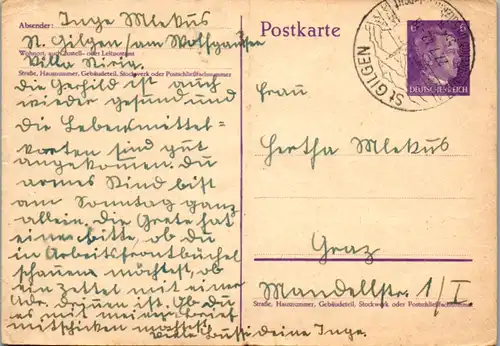 Absender: Inge Mlekus
St. Gilgen/am Wolfgangsee
Wohnort, auch Zustell- oder Leitpostamt
Villa
Straße, Hausnummer, Gebäudeteil, Stockwerk oder Postschließfachnummer
die Gerhild ist auch
wieder gesund und
die Lebensmittel-
karten sind gut
angekommen. Du
armes Kind bist
am Sonntag ganz
allein. Die Grete hat
eine bitte, ob du
in Arbeitsfrontbüchel
schauen möchtest, ob
ein Zettel mit einer
Adr. drinnen ist. Ob du
es mit meinem brief
mitschicken möchtest.
Viele Bussi deine Inge.
Postkarte
6
DEUTSCHES REICH
ST. GILGEN
Frau
Hertha Mlekus
Graz
Mandellstr. 1/I.
Straße, Hausnummer, Gebäudeteil, Stockwerk oder Postschließfachnummer